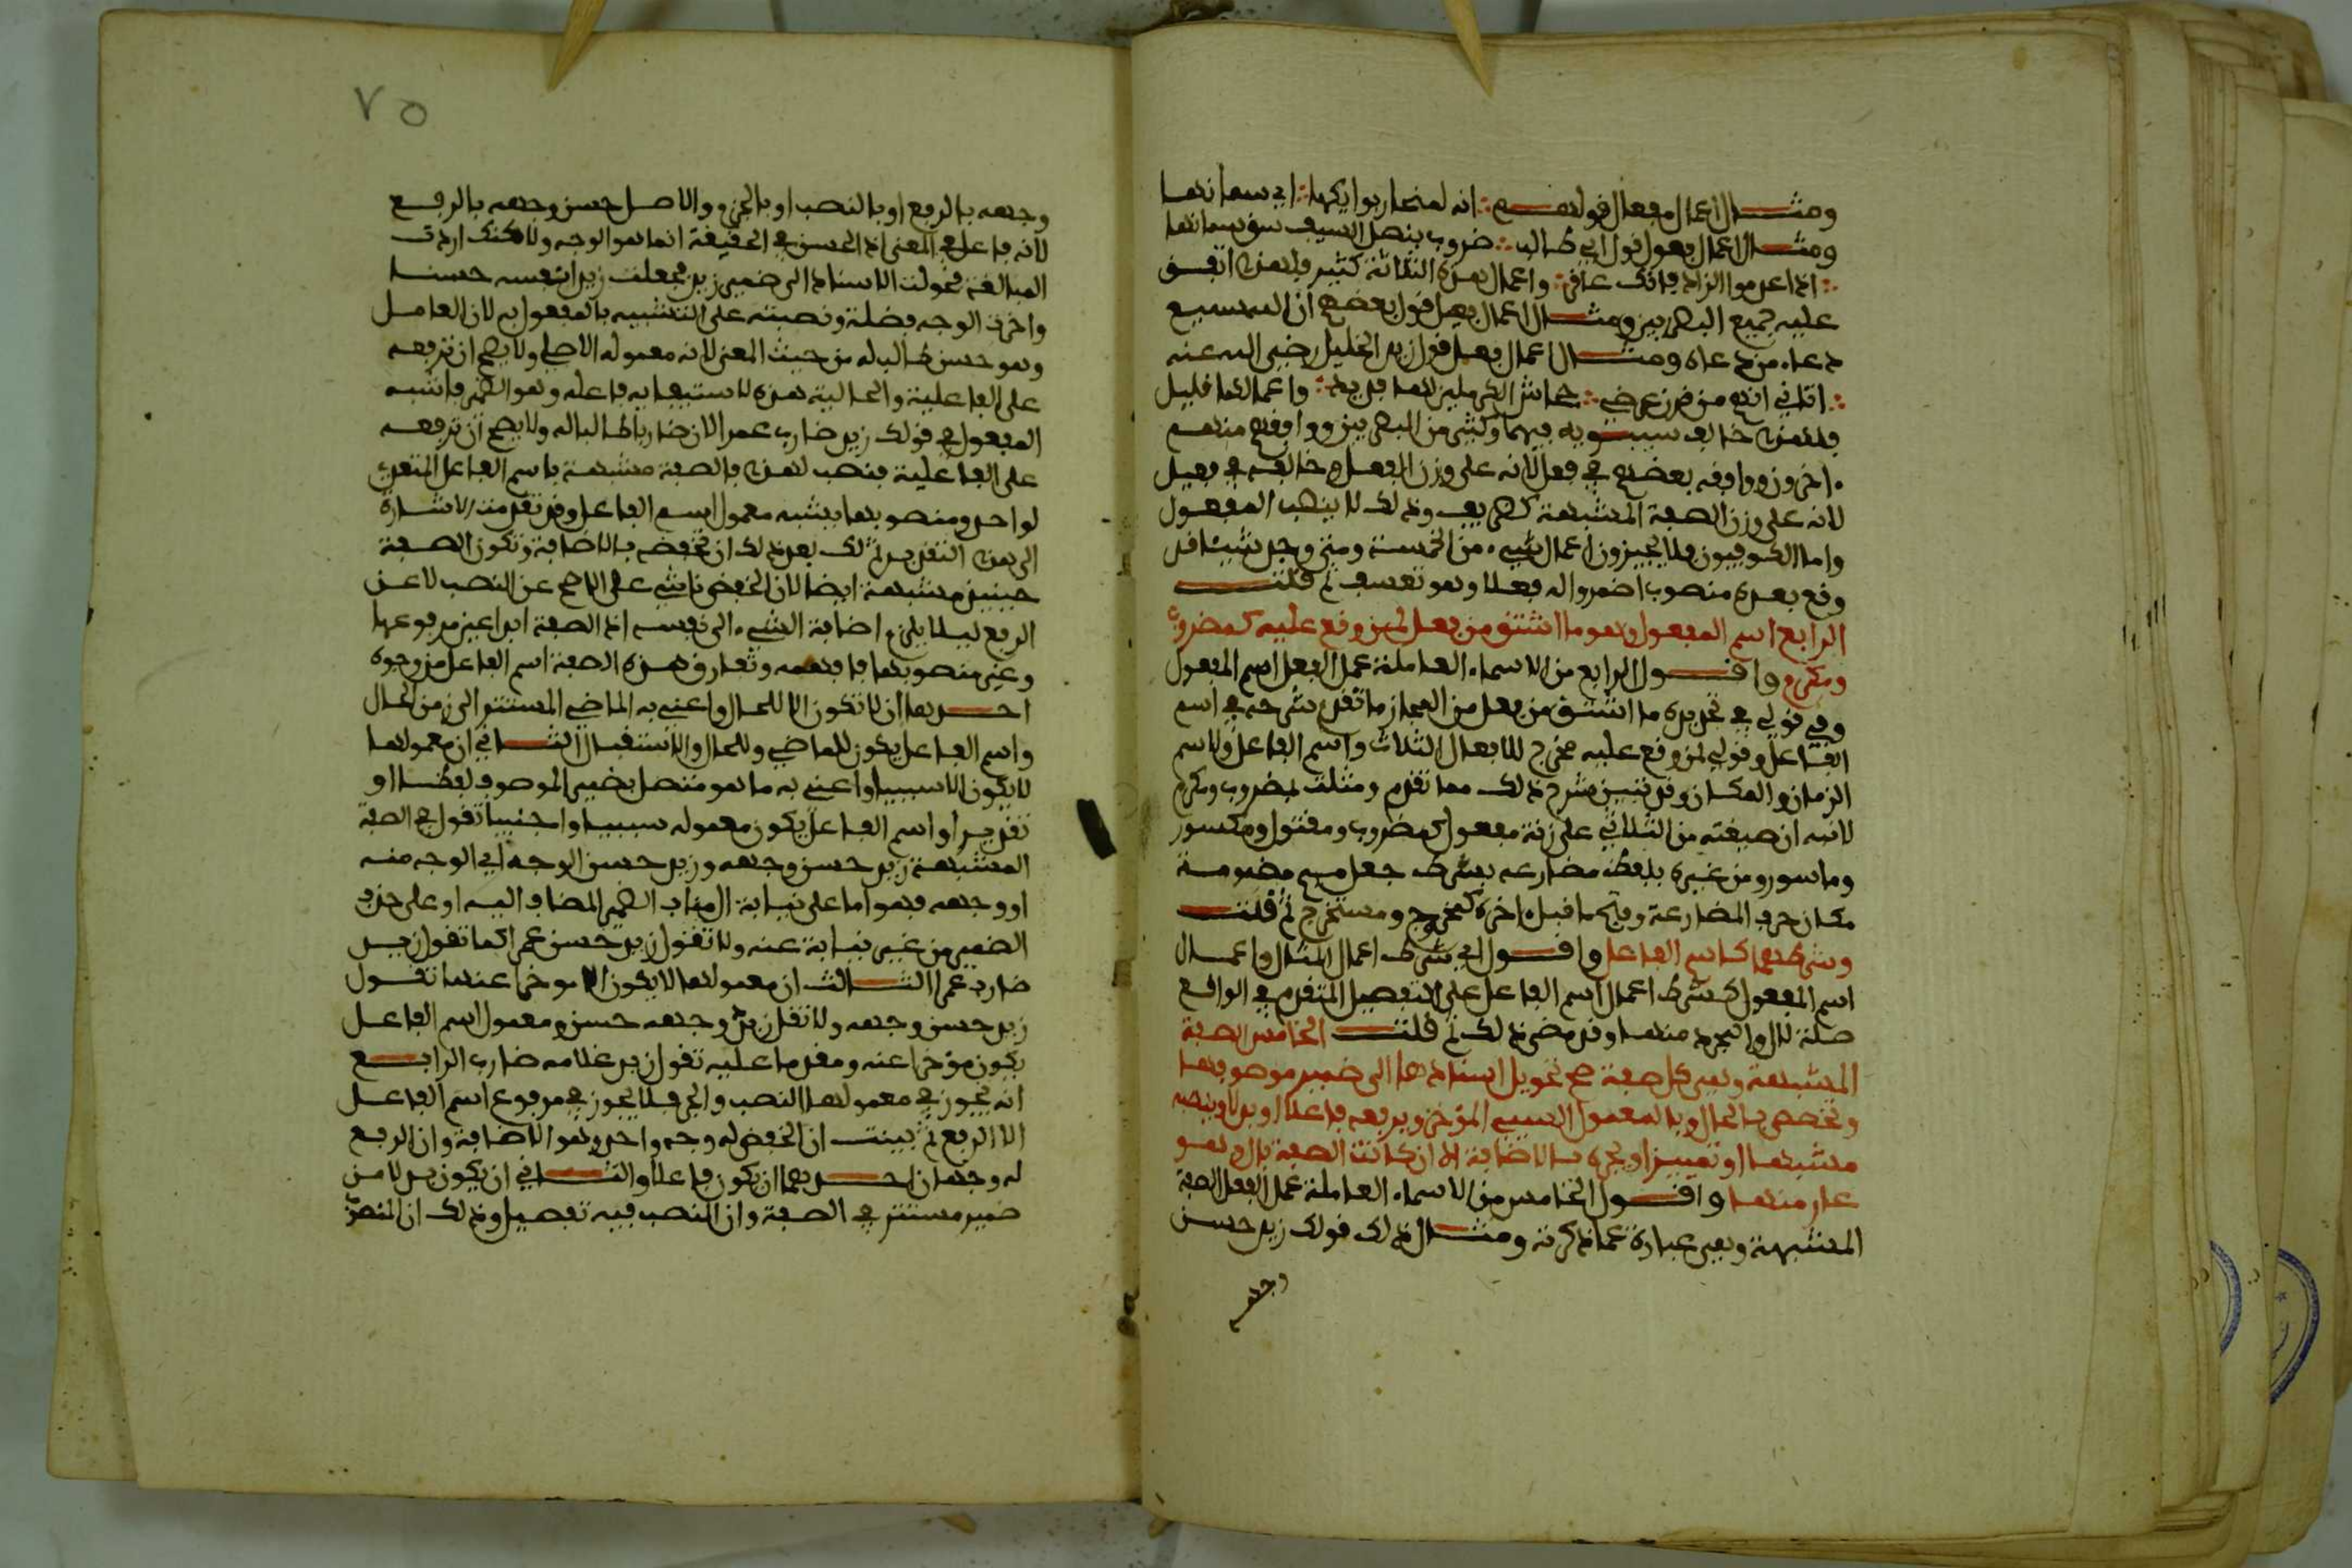 ومثال اعمال مفعال قولهم انه لمنحار بوايكها اي سمانها
ومثال اعمال فعول قول ابي طالب ضروب بنصل السيف سوق سمانها
اذا عدموا الزاد فانك عافر واعمال هذه الثلاثة كثير فلهذا اتفق
عليه جميع البصريين ومثال اعمال فعيل قول بعضهم ان الله سميع
دعاء من دعاه ومثال اعمال فعل قول زيد الخليل رضي الله عنه
اتاني انهم مزقون عرضي جحاش الكرملين لها فديد واعمالهما قليل
فلهذا خالف سيبويه فيهما كثير من البصريين ووافقه منهم
اخرون ووافقه بعضهم في فعل لانه على وزن الفعل وخالفه في فعيل
لانه على وزن الصفة المشبهة كظريف وذلك لا ينصب المفعول
واما الكوفيون فلا يجيزون اعمال شيء من الخمسة ومتى وجد شيئا قد
وقع بعده منصوب اضمروا له فعلا وهو تعسف ثم قلت
الرابع اسم المفعول وهو ما اشتق من فعل لمن وقع عليه كمضروب
ومكرم واقول الرابع من الاسماء العاملة عمل الفعل اسم المفعول
وفي قولي في تحديده ما اشتق من فعل من المجاز ما تقدم شرحه في اسم
الفاعل وقولي لمن وقع عليه مخرج للافعال الثلاث واسم الفاعل ولاسم
الزمان والمكان وقد تبين شرح ذلك مما تقدم ومثلت بمضروب ومكرم
لانبه ان صيغته من الثلاثي على زنة مفعول كمضروب ومقتول ومكسور
وماسور ومن غيره بلفظ مضارعه بشرط جعل ميم مضمومة
مكان حرف المضارعة وفتح ما قبل اخره كمخرج ومستخرج ثم قلت
وشرطهما كاسم الفاعل واقول اي شرط اعمال المثال واعمال
اسم المفعول كشرط اعمال اسم الفاعل على التفصيل المتقدم في الواقع
صلة لال والمجرد منها وقد مضى ذلك ثم قلت الخامس الصفة
المشبهة وهي كل صفة صح تحويل اسنادها الى ضمير موصوفها
وتختص بالحال وبالمعمول السببي المؤخر وترفعه فاعلا او بدلا وتنصبه
مشبها او تمييزا وتجره بالاضافة الا ان كانت الصفة بال وهو
عار منها واقول الخامس من الاسماء العاملة عمل الفعل الصفة
المشبهة وهي عبارة عما ذكرته ومثال ذلك قولك زيد حسن
وجهه
٧٥
وجهه بالرفع او بالنصب او بالجر والاصل حسن وجهه بالرفع
لانه فاعل في المعنى اذ الحسن في الحقيقة انما هو الوجه ولاكنك اردت
المبالغة فحولت الاسناد الى ضمير زيد فجعلت زيدا نفسه حسنا
واخرت الوجه فضلة ونصبته على التشبيه بالمفعول به لان العامل
وهو حسن طالب له من حيث المعنى لانه معموله الاصلي ولا يصح ان ترفعه
على الفاعلية والحالية هذه لاستيفايه فاعله وهو الضمير فاشبه
المفعول في قولك زيد ضارب عمرا لان ضاربا طالب له ولا يصح ان ترفعه
على الفاعلية فنصب لهذا فالصفة مشبهة باسم الفاعل المتعدي
لواحد ومنصوبها يشبه معمول اسم الفاعل وقد تقدمت الاشارة
الى هذا التقدير ثم لك بعد ذلك ان تخفضه بالاضافة وتكون الصفة
حينيذ مشبهة ايضا لان الخفض ناشي على الاصح عن النصب لا عن
الرفع ليلا يلزم اضافة الشيء الى نفسه اذ الصفة ابدا عين مرفوعها
وغير منصوبها فافهمه وتفارق هذه الصفة اسم الفاعل من وجوه
احدها ان لا تكون الا للحال واعني به الماضي المستمر الى زمن الحال
واسم الفاعل يكون للماضي وللحال والاستقبال الثاني ان معمولها
لا يكون الا سببيا واعني به ما هو متصل بضمير الموصوف لفظا او
تقديرا واسم الفاعل يكون معموله سببيا واجنبيا تقول في الصفة
المشبهة زيد حسن وجهه وزيد حسن الوجه اي الوجه منه
او وجهه فهو اما على نيابة ال مناب الضمير المضاف اليه او على حذف
الضمير من غير نيابة عنه ولا تقول زيد حسن عمرا كما تقول زيد
ضارب عمرا الثالث ان معمولها لا يكون الا موخرا عنها تقول
زيد حسن وجهه ولا تقل زيد وجهه حسن ومعمول اسم الفاعل
يكون مؤخرا عنه ومقدما عليه تقول زيد غلامه ضارب الرابع
انه يجوز في معمولها النصب والجر فلا يجوز في مرفوع اسم الفاعل
الا الرفع ثم بينت ان الخفض له وجه واحد وهو الاضافة وان الرفع
له وجهان احدهما ان تكون فاعلا والثاني ان يكون بدلا من
ضمير مستتر في الصفة وان النصب فيه تفصيل وذلك ان المنصوب